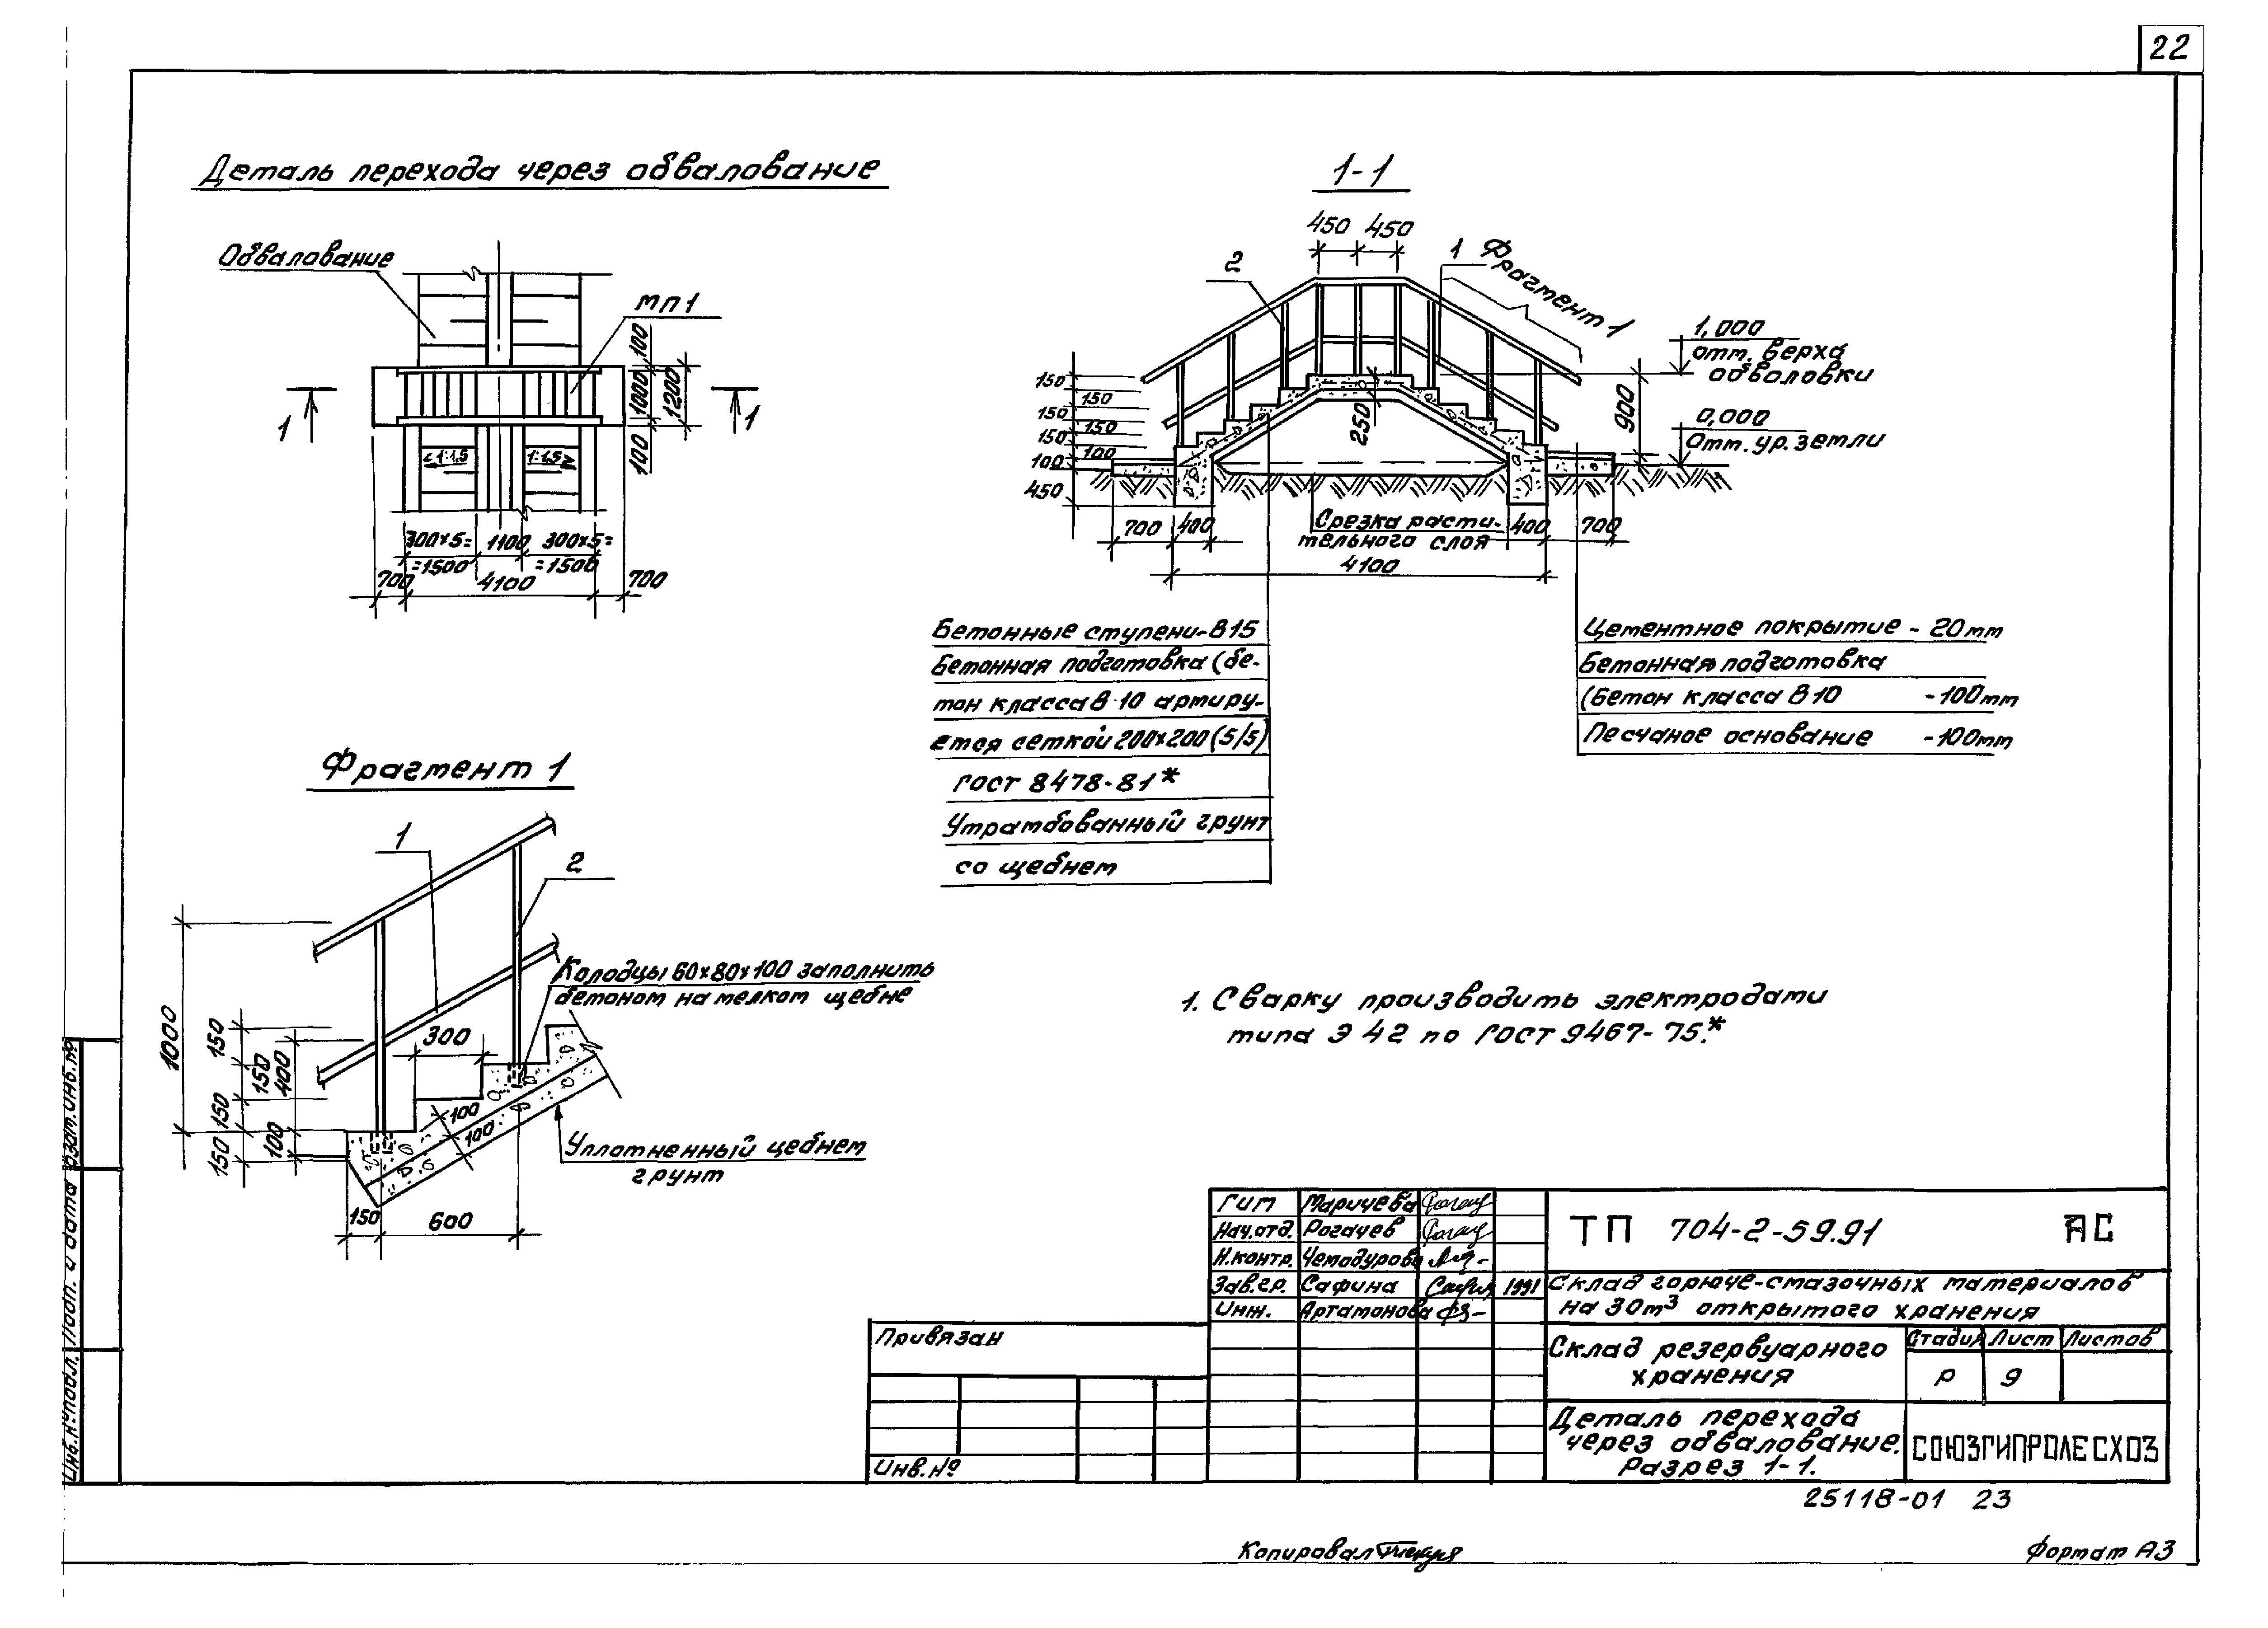 22
Деталь перехода через обвалование
Обвалование
МП1
100
1000
1200
100
1
1
1:1,5
1:1,5
300х5=
=1500
1100
300х5=
=1500
700
4100
700
1-1
450
450
2
1
Фрагмент 1
1,000
отм. верха
обваловки
900
0,000
Отм. ур. земли
150
150
150
150
150
150
100
100
450
250
700
400
Срезка расти-
тельного слоя
400
700
4100
Бетонные ступени-В15
Бетонная подготовка (бе-
тон класса В 10 армиру-
ется сеткой 200х200 (5/5)
ГОСТ 8478-81*
Утрамбованный грунт
со щебнем
Цементное покрытие - 20мм
Бетонная подготовка
(Бетон класса В10 - 100мм
Песчаное основание - 100мм
Фрагмент 1
1
2
Колодцы 60х80х100 заполнить
бетоном на мелком щебне
300
1000
150
150
400
150
150
100
100
100
Уплотненный щебнем
грунт
150
600
1. Сварку производить электродами
типа Э 42 по ГОСТ 9467-75.*
ГИП Маричева
Нач.отд. Рогачев
Н.контр. Чемодурова
Зав.гр. Сафина 1991
Инж. Артамонова
ТП 704-2-59.91 АС
Склад горюче-смазочных материалов
на 30м³ открытого хранения
Склад резервуарного
хранения
Стадия Лист Листов
Р 9
Деталь перехода
через обвалование.
Разрез 1-1.
СОЮЗГИПРОЛЕСХОЗ
Привязан
Инв.№
Инв.№подл. Подп. и дата Взам.инв.№
25118-01 23
Копировал
Формат А3